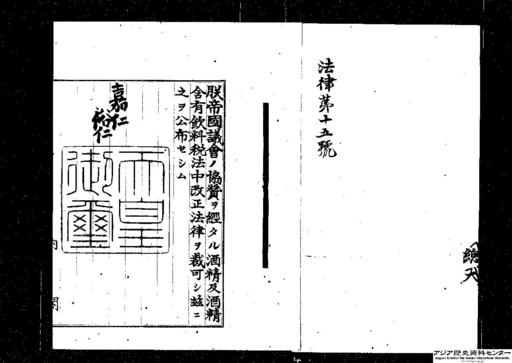 法律第十五號
朕帝國議會ノ協贊ヲ經タル酒精及酒精
含有飲料税法中改正法律ヲ裁可シ玆ニ
之ヲ公布セシム
嘉仁
裕仁
天皇
御璽
内
閣
アジア歴史資料センター
Japan Center for Asian Historical Records